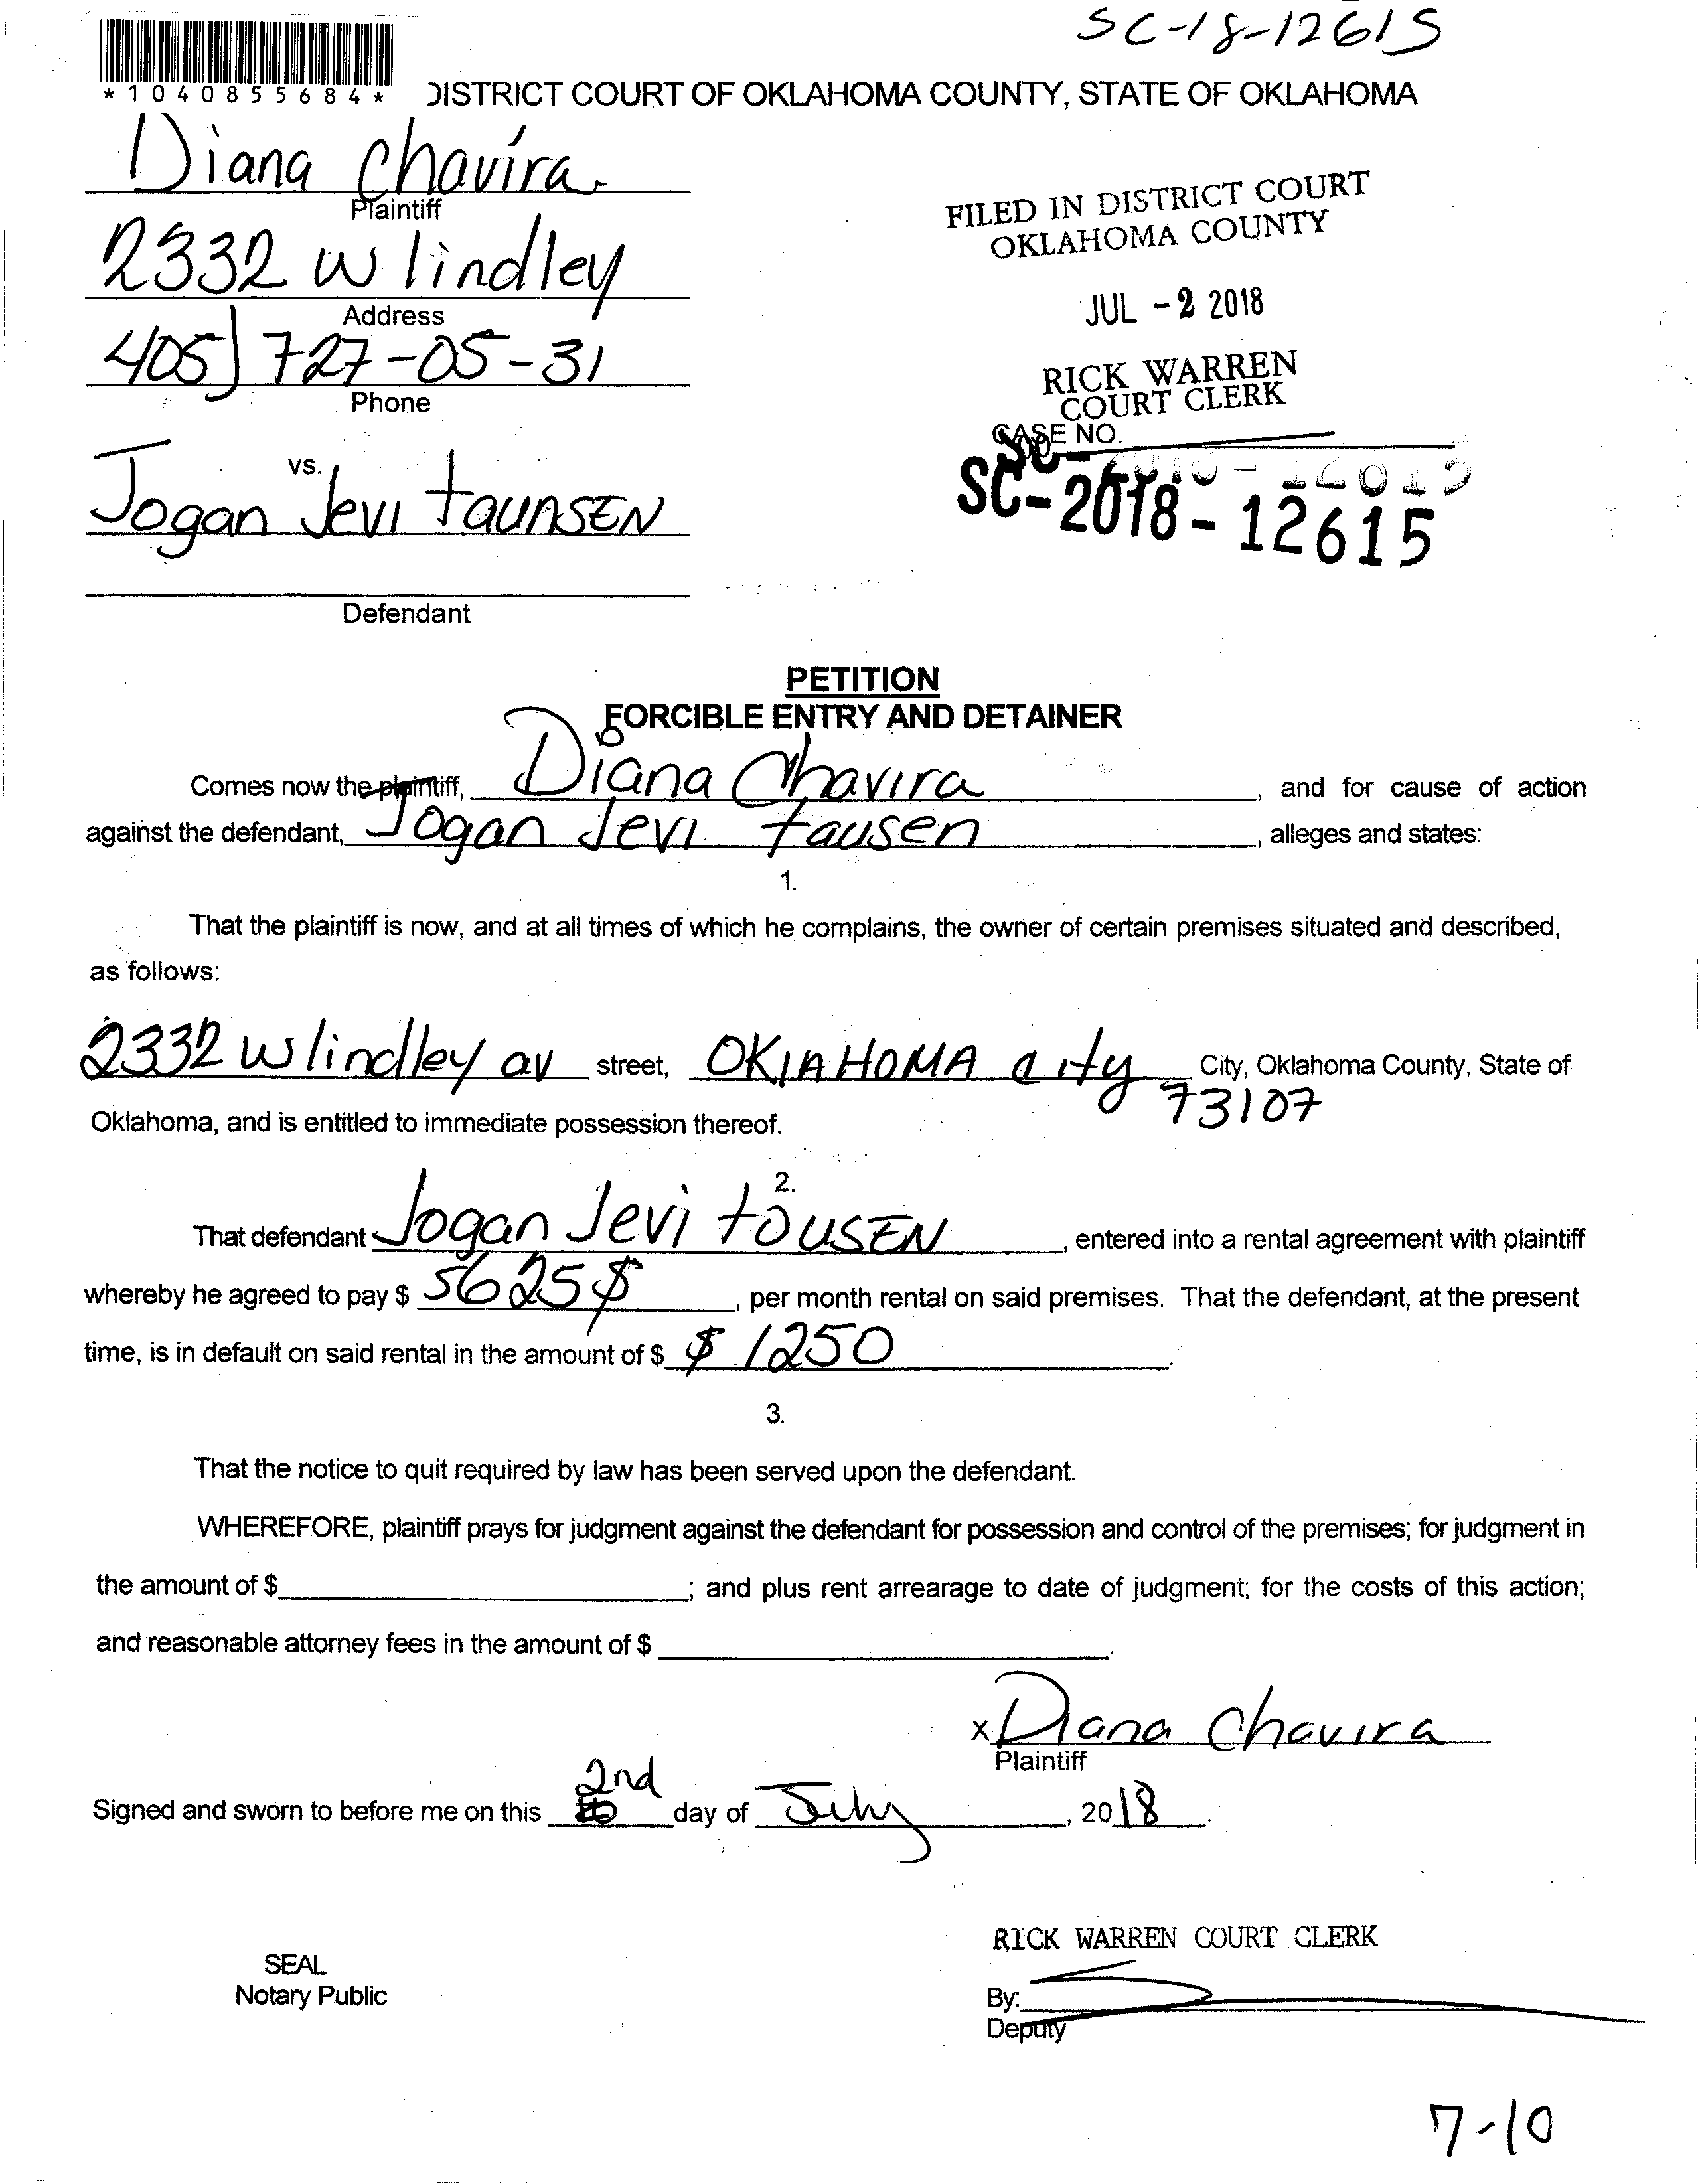 SC-18-12615
*1040855684*
DISTRICT COURT OF OKLAHOMA COUNTY, STATE OF OKLAHOMA
Diana Chavira.
Plaintiff
2332 W lindley
Address
405) 727-05-31
Phone
vs.
Jogan Jevi taunsEN
Defendant
FILED IN DISTRICT COURT
OKLAHOMA COUNTY
JUL -2 2018
RICK WARREN
COURT CLERK
CASE NO.
SC-2018-12615
PETITION
FORCIBLE ENTRY AND DETAINER
Comes now the plaintiff, Diana Chavira, and for cause of action
against the defendant, Jogan Jevi tausen, alleges and states:
1.
That the plaintiff is now, and at all times of which he complains, the owner of certain premises situated and described,
as follows:
2332 W lindley av street, OKlAHOMA city City, Oklahoma County, State of
73107
Oklahoma, and is entitled to immediate possession thereof.
2.
That defendant Jogan Jevi toUSEN, entered into a rental agreement with plaintiff
whereby he agreed to pay $ 5625$, per month rental on said premises. That the defendant, at the present
time, is in default on said rental in the amount of $ $ 1250.
3.
That the notice to quit required by law has been served upon the defendant.
WHEREFORE, plaintiff prays for judgment against the defendant for possession and control of the premises; for judgment in
the amount of $; and plus rent arrearage to date of judgment; for the costs of this action;
and reasonable attorney fees in the amount of $.
x Diana Chavira
Plaintiff
Signed and sworn to before me on this 2nd day of July, 2018.
SEAL
Notary Public
RICK WARREN COURT CLERK
By:
Deputy
7-10